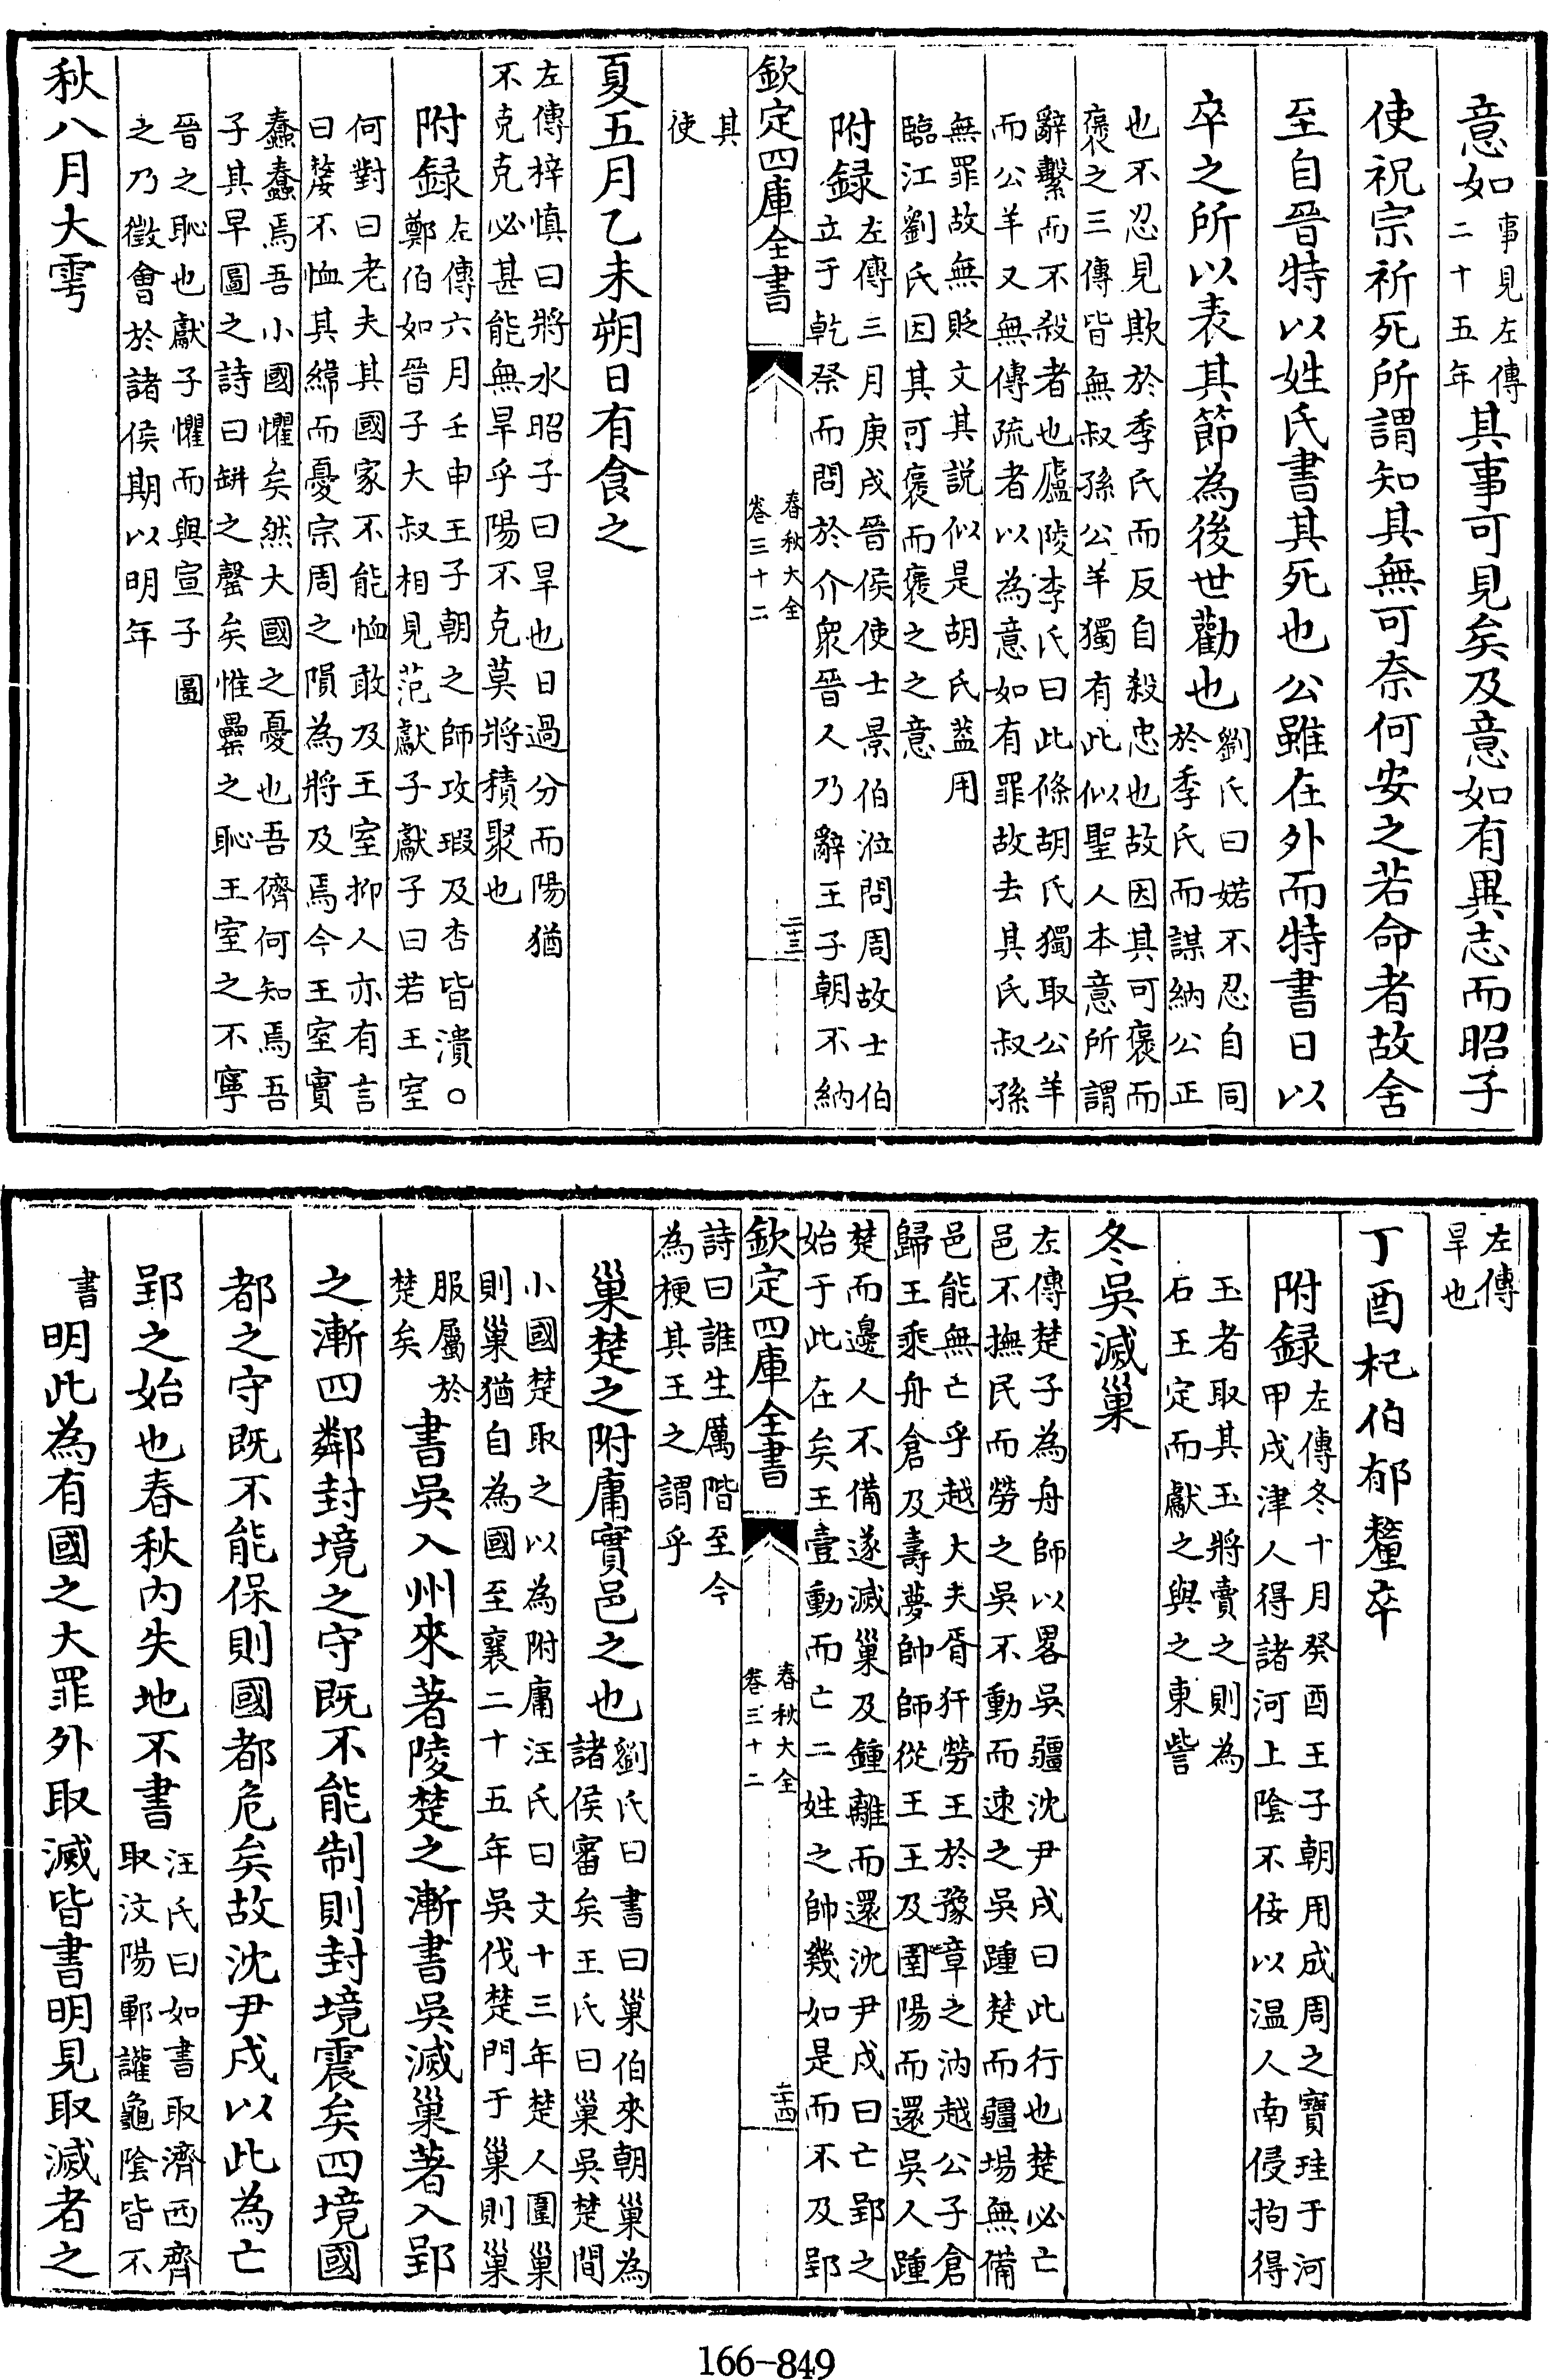 意如事見左傳二十五年其事可見矣及意如有異志而昭子
使祝宗祈死所謂知其無可奈何安之若命者故舍
至自晉特以姓氏書其死也公雖在外而特書日以
卒之所以表其節為後世勸也劉氏曰婼不忍自同於季氏而謀納公正
也不忍見欺於季氏而反自殺忠也故因其可褒而
褒之三傳皆無叔孫公羊獨有此似聖人本意所謂
辭繫而不殺者也廬陵李氏曰此條胡氏獨取公羊
而公羊又無傳疏者以為意如有罪故去其氏叔孫
無罪故無貶文其説似是胡氏葢用
臨江劉氏因其可褒而褒之之意
附録左傳三月庚戌晉侯使士景伯涖問周故士伯
立于乾祭而問於介衆晉人乃辭王子朝不納
欽定四庫全書
春秋大全
卷三十二
二十三
其
使
夏五月乙未朔日有食之
左傳梓慎曰將水昭子曰旱也日過分而陽猶
不克克必甚能無旱乎陽不克莫將積聚也
附録左傳六月壬申王子朝之師攻瑕及杏皆潰○
鄭伯如晉子大叔相見范獻子獻子曰若王室
何對曰老夫其國家不能恤敢及王室抑人亦有言
曰嫠不恤其緯而憂宗周之隕為將及焉今王室實
蠢蠢焉吾小國懼矣然大國之憂也吾儕何知焉吾
子其早圖之詩曰缾之罄矣惟罍之恥王室之不寧
晉之恥也獻子懼而與宣子圖
之乃徵會於諸侯期以明年
秋八月大雩
左傳
旱也
丁酉杞伯郁釐卒
附録左傳冬十月癸酉王子朝用成周之寶珪于河
甲戌津人得諸河上陰不佞以温人南侵拘得
玉者取其玉將賣之則為
石王定而獻之與之東訾
冬吳滅巢
左傳楚子為舟師以畧吳疆沈尹戌曰此行也楚必亡
邑不撫民而勞之吳不動而速之吳踵楚而疆埸無備
邑能無亡乎越大夫胥犴勞王於豫章之汭越公子倉
歸王乘舟倉及壽夢帥師從王王及圉陽而還吳人踵
楚而邊人不備遂滅巢及鍾離而還沈尹戌曰亡郢之
始于此在矣王壹動而亡二姓之帥幾如是而不及郢
欽定四庫全書
春秋大全
卷三十二
二十四
詩曰誰生厲階至今
為梗其王之謂乎
巢楚之附庸實邑之也劉氏曰書曰巢伯來朝巢為
諸侯審矣王氏曰巢吳楚間
小國楚取之以為附庸汪氏曰文十三年楚人圍巢
則巢猶自為國至襄二十五年吳伐楚門于巢則巢
服屬於
楚矣書吳入州來著陵楚之漸書吳滅巢著入郢
之漸四鄰封境之守既不能制則封境震矣四境國
都之守既不能保則國都危矣故沈尹戌以此為亡
郢之始也春秋内失地不書汪氏曰如書取濟西齊
取汶陽鄆讙龜陰皆不
書明此為有國之大罪外取滅皆書明見取滅者之
166-849